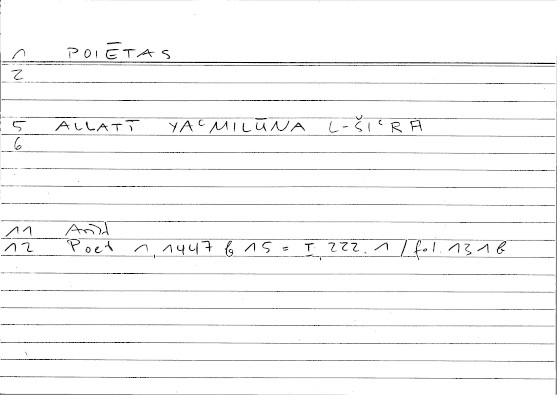 1 POIĒTAS
2
5 ALLATĪ YAᶜMILŪNA L-ŠIᶜRA
6
11 Arist
12 Poet 1, 1447 b 15 = I, 222.1 / fol. 131 b